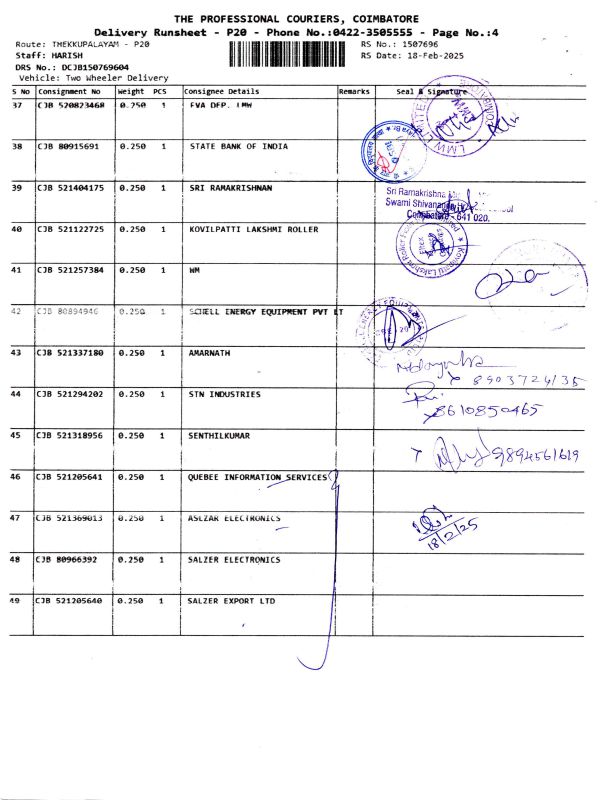 THE PROFESSIONAL COURIERS, COIMBATORE
Delivery Runsheet - P20 - Phone No.:0422-3505555 - Page No.:4
Route: THEKKUPALAYAM - P20 RS No.: 1507696
Staff: HARISH RS Date: 18-Feb-2025
DRS No.: DCJB150769604
Vehicle: Two Wheeler Delivery
S No Consignment No Weight PCS Consignee Details Remarks Seal & Signature
37 CJB 520823468 0.250 1 EVA DEP. LMW
LMW LIMITED
38 CJB 80915691 0.250 1 STATE BANK OF INDIA
39 CJB 521404175 0.250 1 SRI RAMAKRISHNAN
Sri Ramakrishna
Swami Shivananda
Coimbatore - 641 020.
40 CJB 521122725 0.250 1 KOVILPATTI LAKSHMI ROLLER
Kovilpatti Lakshmi Roller
41 CJB 521257384 0.250 1 WM
42 CJB 80894946 0.250 1 SCHELL ENERGY EQUIPMENT PVT LT
43 CJB 521337180 0.250 1 AMARNATH
8903724135
44 CJB 521294202 0.250 1 STN INDUSTRIES
8610850465
45 CJB 521318956 0.250 1 SENTHILKUMAR
9894561619
46 CJB 521205641 0.250 1 QUBEE INFORMATION SERVICES
47 CJB 521369013 0.250 1 ASLZAR ELECTRONICS
18/2/25
48 CJB 80966392 0.250 1 SALZER ELECTRONICS
49 CJB 521205640 0.250 1 SALZER EXPORT LTD